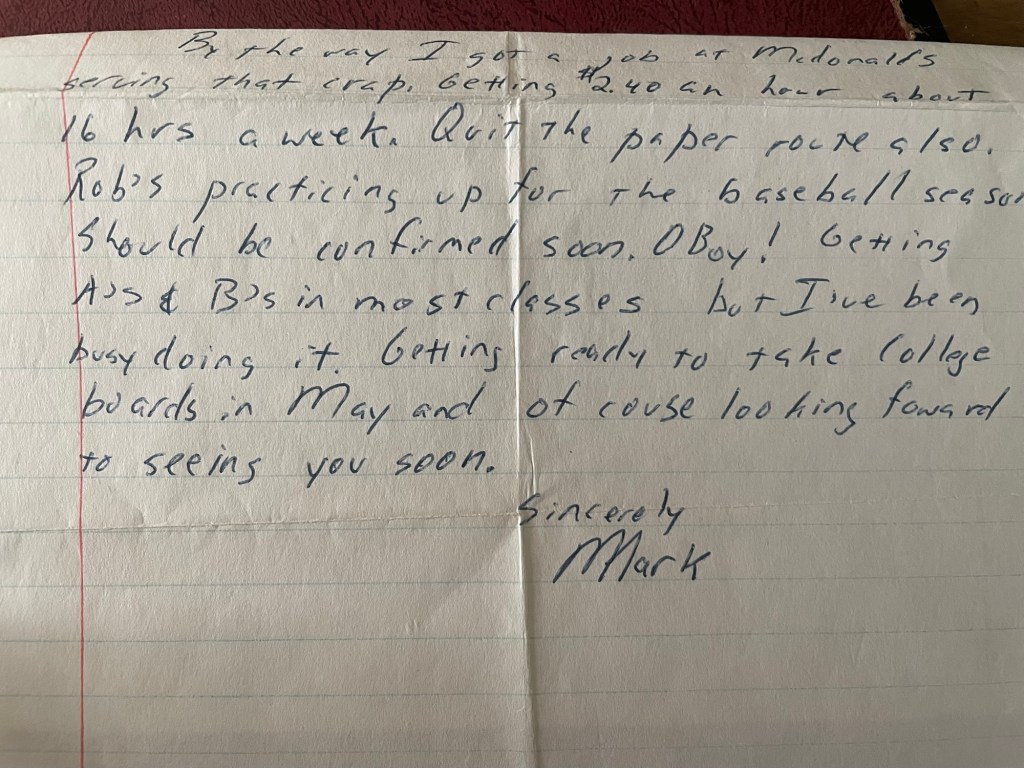 By the way I got a job at Mcdonalds
serving that crap. Getting $2.40 an hour about
16 hrs a week. Quit the paper route also.
Rob's practicing up for the baseball season
Should be confirmed soon. O Boy! Getting
A's & B's in most classes but I've been
busy doing it. Getting ready to take College
boards in May and of couse looking foward
to seeing you soon.
Sincerely
Mark